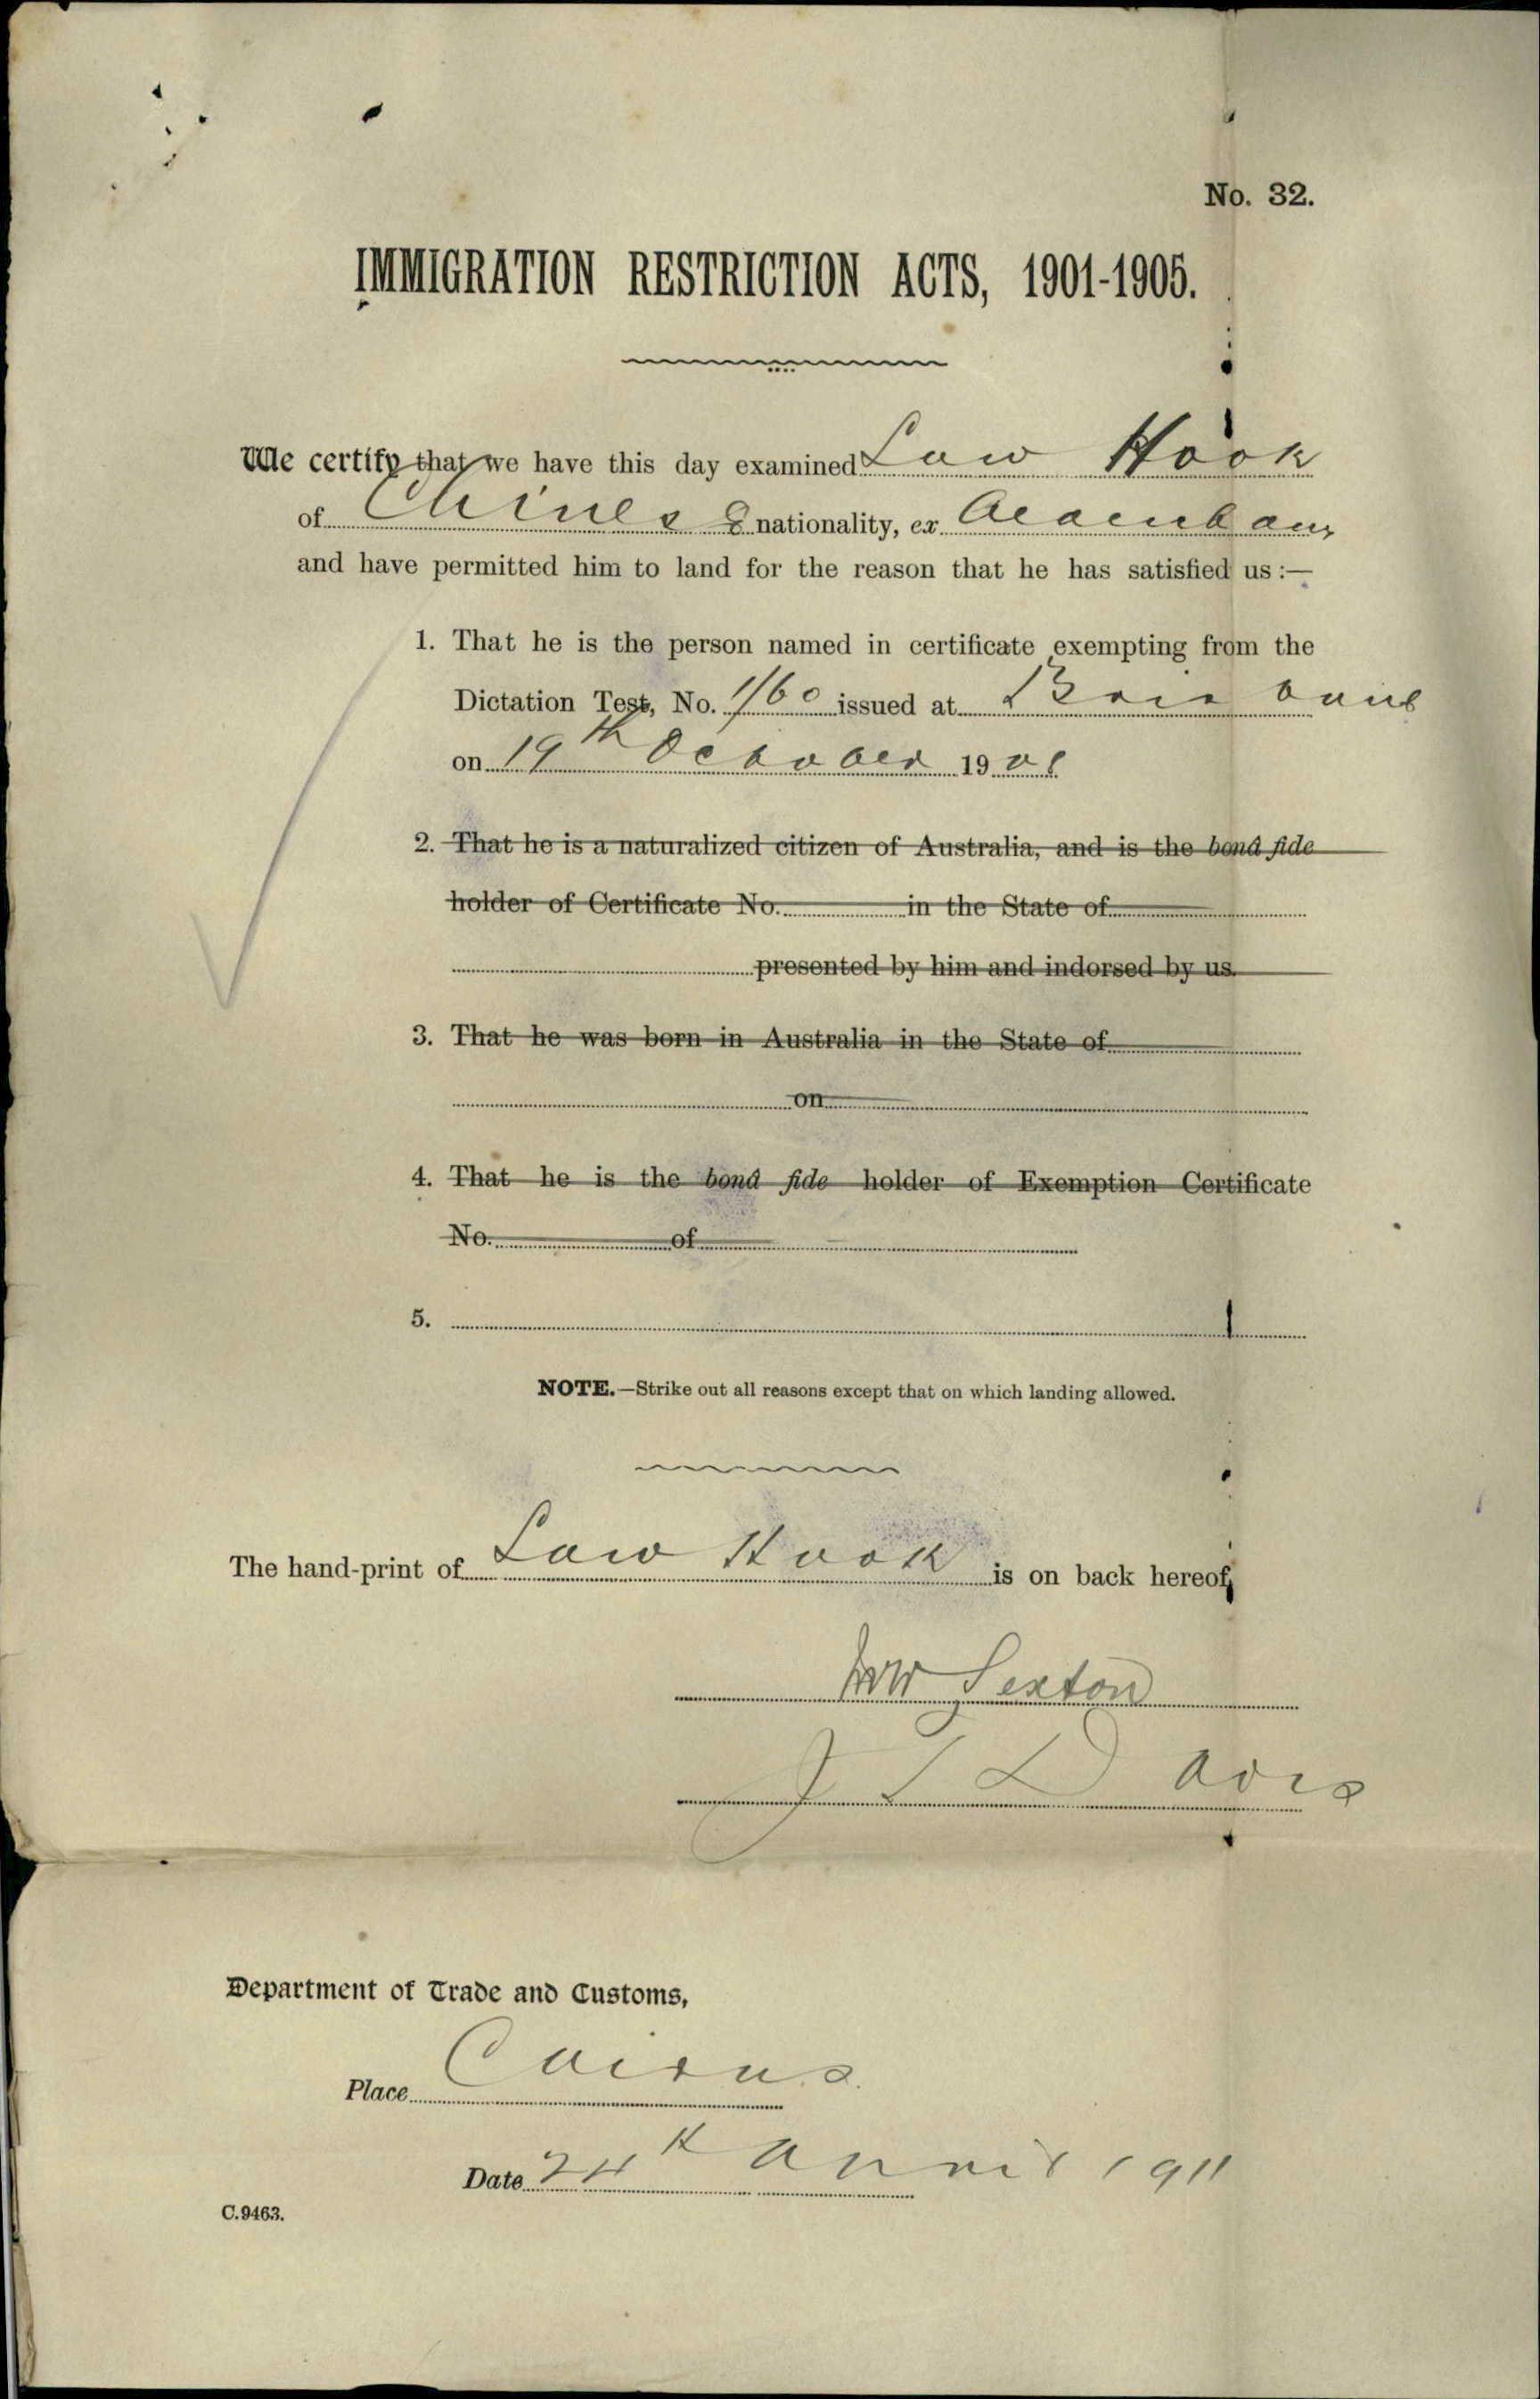 No. 32.
IMMIGRATION RESTRICTION ACTS, 1901-1905.
We certify that we have this day examined Law Hook
of Chinese nationality, ex Aldenham
and have permitted him to land for the reason that he has satisfied us :—
1. That he is the person named in certificate exempting from the
Dictation Test, No. 1/60 issued at Brisbane
on 19th October 1908
2. That he is a naturalized citizen of Australia, and is the bonâ fide
holder of Certificate No. in the State of
presented by him and indorsed by us.
3. That he was born in Australia in the State of
on
4. That he is the bonâ fide holder of Exemption Certificate
No. of
5.
NOTE.—Strike out all reasons except that on which landing allowed.
The hand-print of Law Hook is on back hereof.
Sexton
J L Davis
Department of Trade and Customs,
Place Cairns
Date 24th April 1911
C.9463.